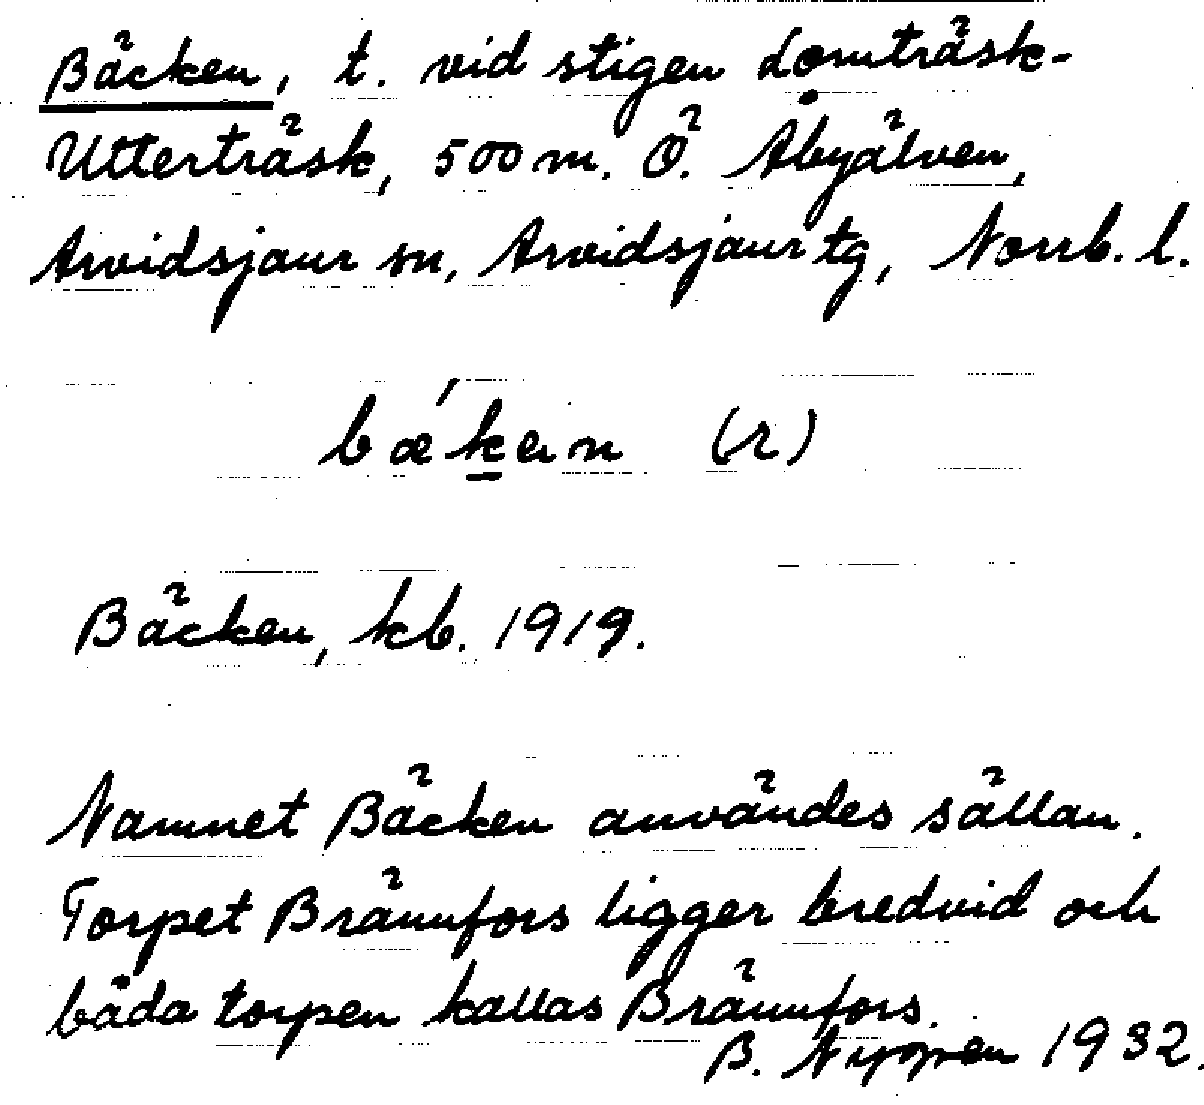 Bäcken, t. vid stigen Lomträsk-
Utterträsk, 500 m. Ö. Åbyälven,
Arvidsjaur sn, Arvidsjaur tg, Norrb. l.
bǽḵen (r)
Bäcken, kb. 1919.
Namnet Bäcken användes sällan.
Torpet Brännfors ligger bredvid och
båda torpen kallas Brännfors.
B. 1932.